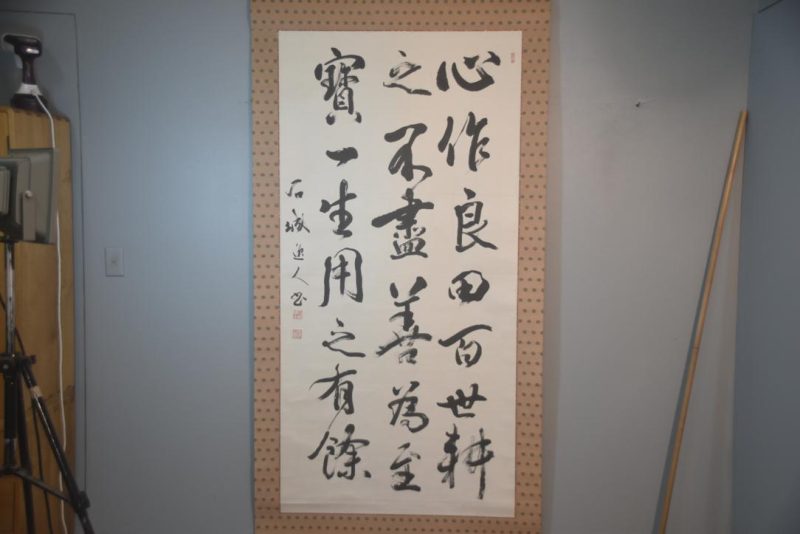 心作良田百世耕
之不盡善為至
寳一生用之有餘
石城逸人書